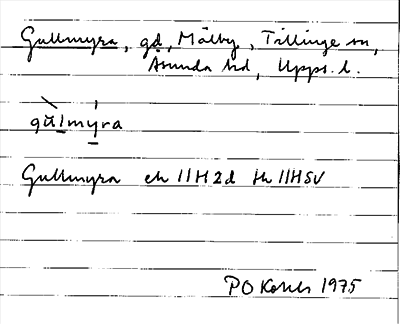 Gullmyra, gd, Mälby, Tillinge sn,
Åsunda hd, Upps. l.
gùlmýra
Gullmyra ek 11H2d tk 11HSV
PO 1975